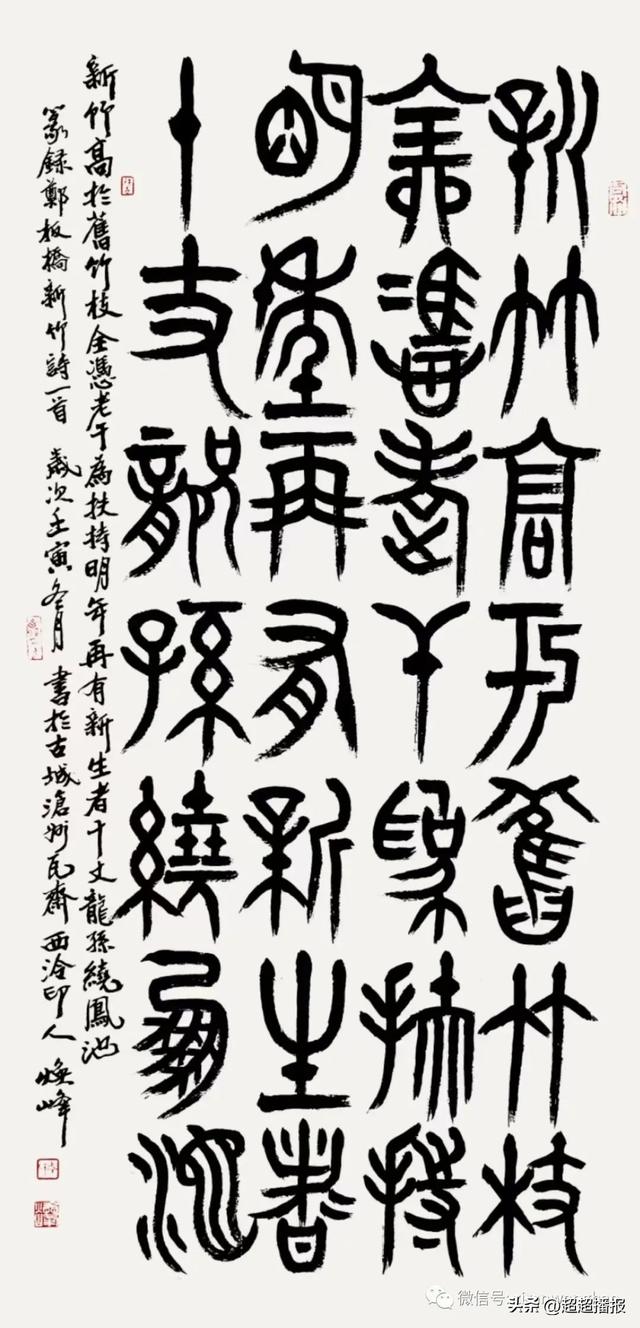 新竹高于舊竹枝
全憑老干為扶持
明年再有新生者
十丈龍孫繞鳳池
新竹高於舊竹枝全憑老干為扶持明年再有新生者十丈龍孫繞鳳池
篆録鄭板橋新竹詩一首 歲次壬寅冬月 書於古城滄州瓦齋 西泠印人 煥峰
微信号:
头条 @超超播报